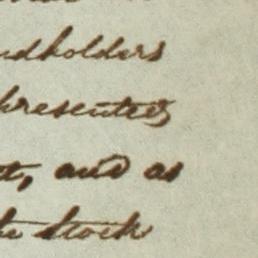 ndholders
presented
t, and as
the stock